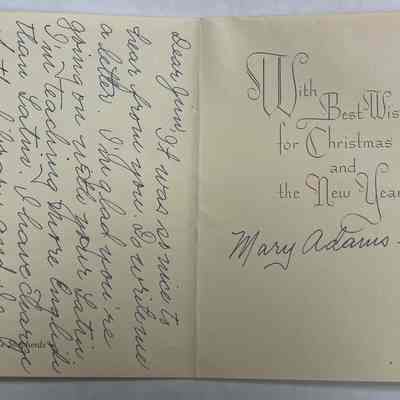 Dear Jim, It was so nice to
hear from you. Do write me
a letter. I'm glad you're
going on with your Latin
I'm teaching more English
than Latin. I have charge
of the library and
With
Best Wis
for Christmas
and
the New Year
Mary Adams